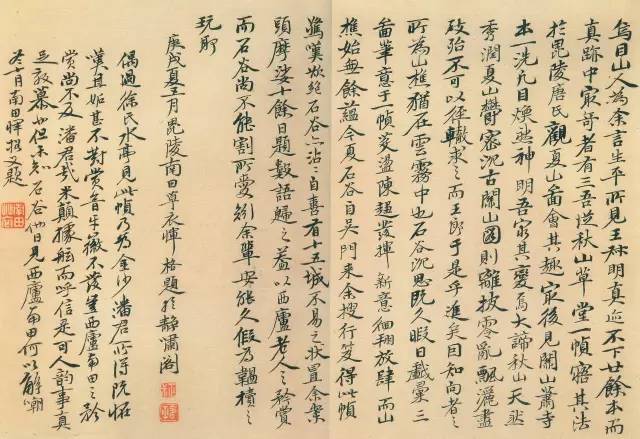 烏目山人為余言生平所見王叔明真迹不下廿餘本而
真跡中最奇者有三吾從秋山草堂一幀寤其法
於毘陵唐氏觀夏山啚會其趣最後見關山蕭寺
本一洗凡目煥然神明吾窮其變焉大諦秋山天然
秀潤夏山欝密沉古關山圖則離披零亂飄灑盡
致殆不可以徑轍求之而王郎于是乎進矣因知向者之
所為山樵猶在雲霧中也石谷沉思既久暇日戲彙三
啚筆意于一幀滌盪陳趨發揮新意徊翔放肆而山
樵始無餘蘊今夏石谷自吳門來余搜行笈得此幀
驚嘆欲絕石谷亦沾沾自喜有十五城不易之狀置余案
頭摩娑十餘日題數語歸之蓋以西廬老人之矜賞
而石谷尚不能割所愛矧余輩安能久假為韞櫝之
玩耶
庚戌夏五月毘陵南田草衣惲格題於靜嘯閣
偶過徐氏水亭見此幀乃為金沙潘君所得既怪
嘆且妬甚不對賞音牙徽不發豈西廬南田之矜
賞尚不及潘君哉米顛據舷而呼信是可人韵事真
足效慕也但未知石谷他日見西廬南田何以解嘲
冬十月南田惲格又題